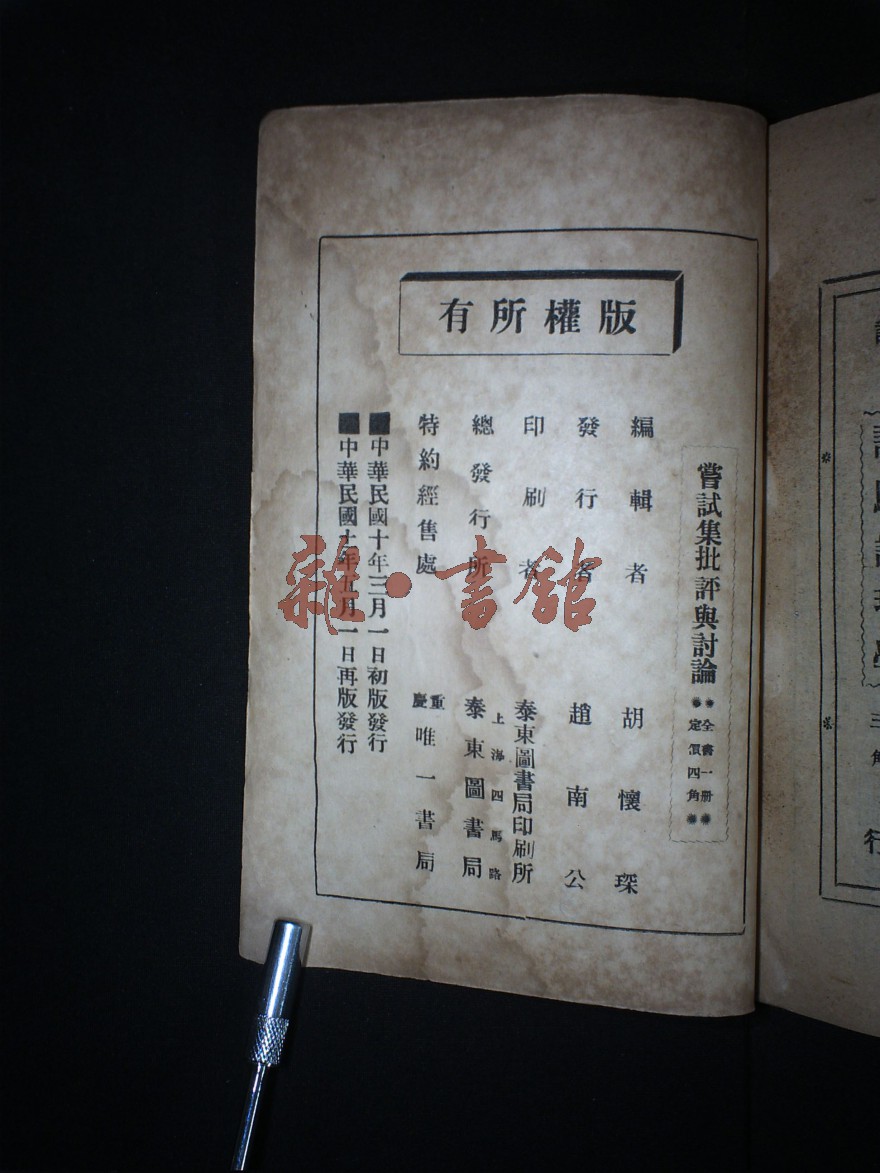 版權所有
嘗試集批評與討論
全書一冊
定價四角
編輯者 胡懷琛
發行者 趙南公
印刷者 泰東圖書局印刷所
上海四馬路
總發行所 泰東圖書局
特約經售處 重慶 唯一書局
中華民國十年三月一日初版發行
中華民國十年五月一日再版發行
雜·書館
三角
行